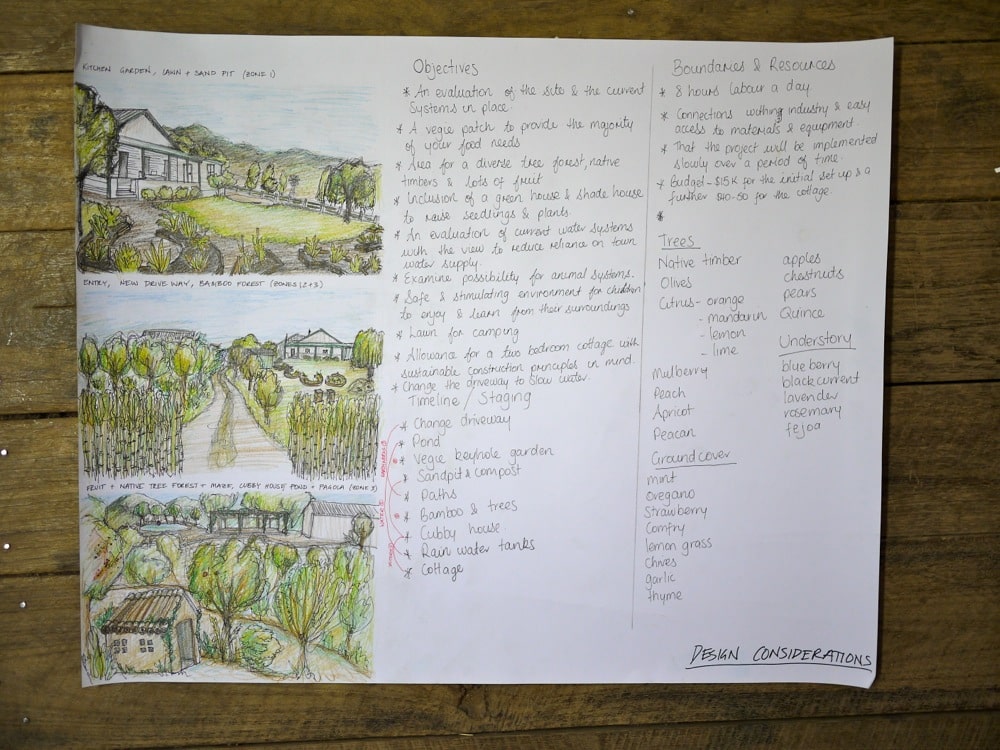 KITCHEN GARDEN, LAWN + SAND PIT (ZONE 1)
ENTRY, NEW DRIVE WAY, BAMBOO FOREST (ZONES 1,2+3)
FRUIT + NATIVE TREE FOREST + MAZE, CUBBY HOUSE, POND + PAGOLA (ZONE 3)
Objectives
* An evaluation of the site & the current
systems in place.
* A vegie patch to provide the majority
of your food needs
* Area for a diverse tree forest, native
timbers & lots of fruit
* Inclusion of a green house & shade house
to raise seedlings & plants.
* An evaluation of current water systems
with the view to reduce reliance on town
water supply.
* Examine possibility for animal systems.
* Safe & stimulating environment for children
to enjoy & learn from their surroundings
* Lawn for camping
* Allowance for a two bedroom cottage with
sustainable construction principles in mind.
* Change the driveway to slow water.
Timeline / Staging
* Change driveway
* Pond
* Vegie keyhole garden
* Sandpit & compost
* Paths
* Bamboo & trees
* Cubby house.
* Rain water tanks
* Cottage
Boundaries & Resources
* 8 hours labour a day
* Connections withing industry & easy
access to materials & equipment.
* That the project will be implemented
slowly over a period of time.
* Budget - $15K for the initial set up & a
further $40-50 for the cottage.
*
Trees
Native timber
Olives
Citrus - orange
- mandarin
- lemon
- lime
Mulberry
Peach
Apricot
Peacan
apples
chestnuts
pears
Quince
Understory
blue berry
black current
lavender
rosemary
fejoa
Groundcover
mint
oregano
Strawberry
Comfry
lemon grass
Chives
garlic
thyme
DESIGN CONSIDERATIONS